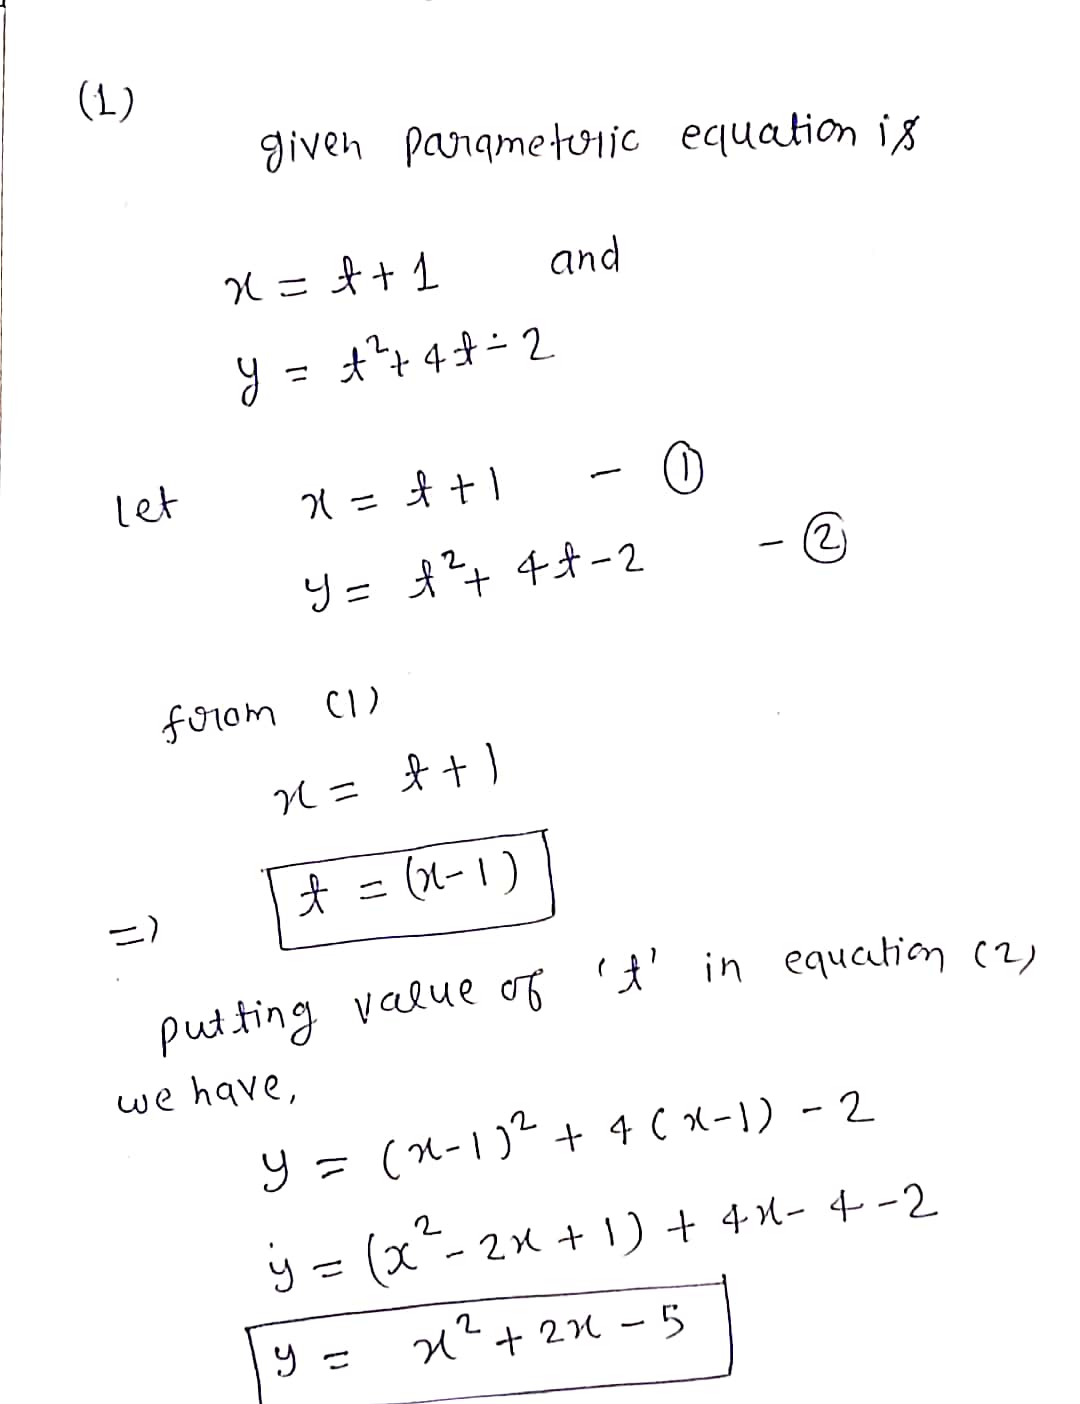 (1)
given parametric equation is
x = t + 1 and
y = t² + 4t - 2
let x = t + 1 - ①
y = t² + 4t - 2 - ②
from (1)
x = t + 1
=> t = (x-1)
putting value of 't' in equation (2)
we have,
y = (x-1)² + 4(x-1) - 2
y = (x² - 2x + 1) + 4x - 4 - 2
y = x² + 2x - 5